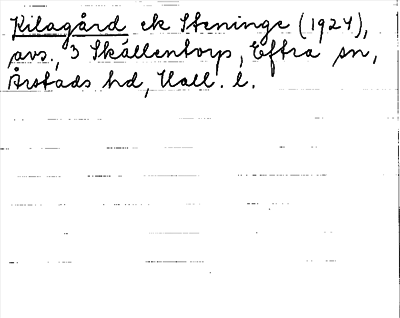 Kilagård ek Steninge (1927),
avs., 3 Skällentorp, Eftra sn,
Årstads hd, Hall. l.